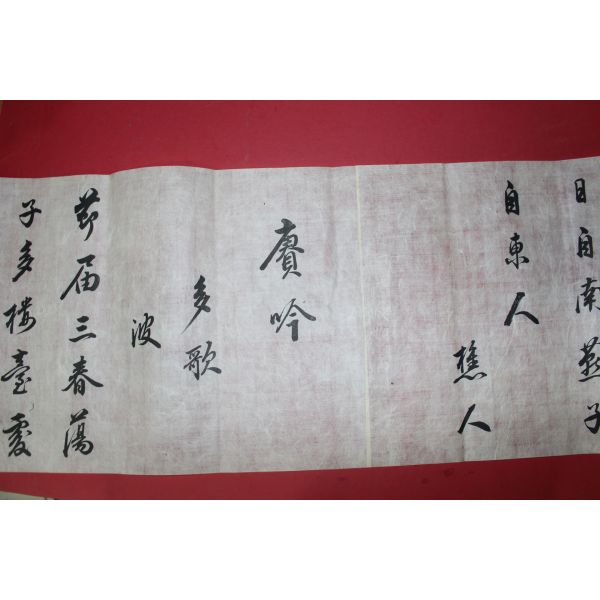 日自南燕子
自東人
樵人
賡吟
多歌
波
節届三春蕩
子多樓臺處